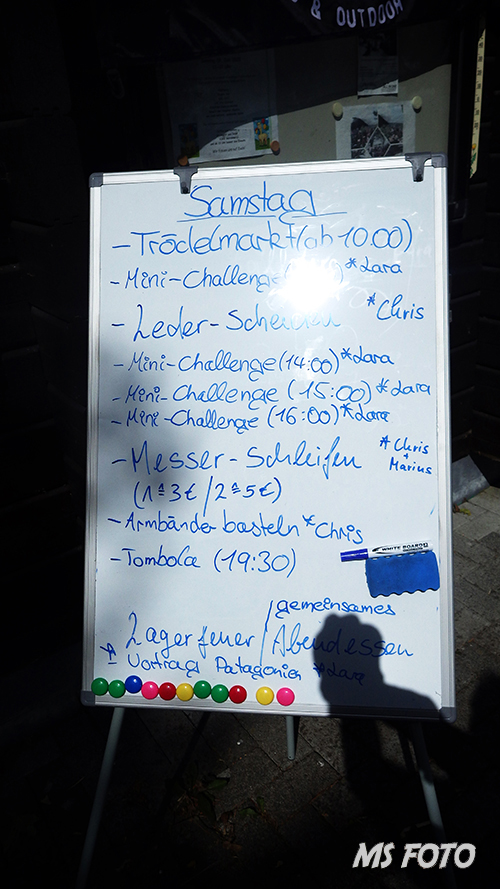 & OUTDOOR
Samstag
- Trödelmarkt (ab 10.00)
- Mini-Challenge *Lara
- Leder- *Chris
- Mini-Challenge (14:00) *Lara
- Mini-Challenge (15:00) *Lara
- Mini-Challenge (16:00) *Lara
- Messer-Schleifen *Chris + Marius
(1≙3€ / 2≙5€)
- Armbänder basteln *Chris
- Tombola (19:30)
WHITE BOARD
Lagerfeuer / gemeinsames Abendessen
* Vortrag Patagonien *Lara
MS FOTO